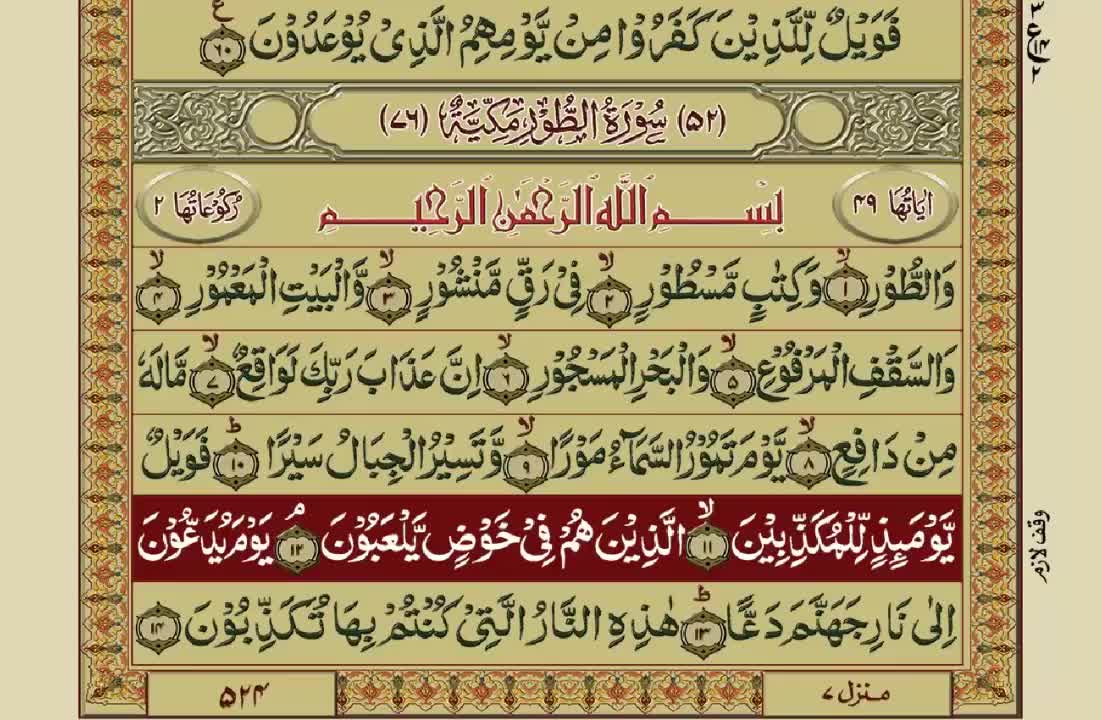 فَوَيْلٌ لِّلَّذِيْنَ كَفَرُوْا مِنْ يَّوْمِهِمُ الَّذِيْ يُوْعَدُوْنَ ۶۰ ع
ع ۳ ۱۴ ۲
(۵۲) سُوْرَةُ الطُّوْرِ مَكِّيَّةٌ (۷۶)
اٰيَاتُهَا ۴۹ بِسْمِ اللّٰهِ الرَّحْمٰنِ الرَّحِيْمِ رُكُوْعَاتُهَا ۲
وَالطُّوْرِ ۙ۱ وَكِتٰبٍ مَّسْطُوْرٍ ۙ۲ فِيْ رَقٍّ مَّنْشُوْرٍ ۙ۳ وَّالْبَيْتِ الْمَعْمُوْرِ ۙ۴
وَالسَّقْفِ الْمَرْفُوْعِ ۙ۵ وَالْبَحْرِ الْمَسْجُوْرِ ۙ۶ اِنَّ عَذَابَ رَبِّكَ لَوَاقِعٌ ۙ۷ مَّا لَهٗ
مِنْ دَافِعٍ ۙ۸ يَّوْمَ تَمُوْرُ السَّمَآءُ مَوْرًا ۙ۹ وَّتَسِيْرُ الْجِبَالُ سَيْرًا ؕ۱۰ فَوَيْلٌ
يَّوْمَئِذٍ لِّلْمُكَذِّبِيْنَ ۙ۱۱ الَّذِيْنَ هُمْ فِيْ خَوْضٍ يَّلْعَبُوْنَ ۘ۱۲ يَوْمَ يُدَعُّوْنَ
وقف لازم
اِلٰى نَارِ جَهَنَّمَ دَعًّا ؕ۱۳ هٰذِهِ النَّارُ الَّتِيْ كُنْتُمْ بِهَا تُكَذِّبُوْنَ ۱۴
منزل ۷ ۵۲۴